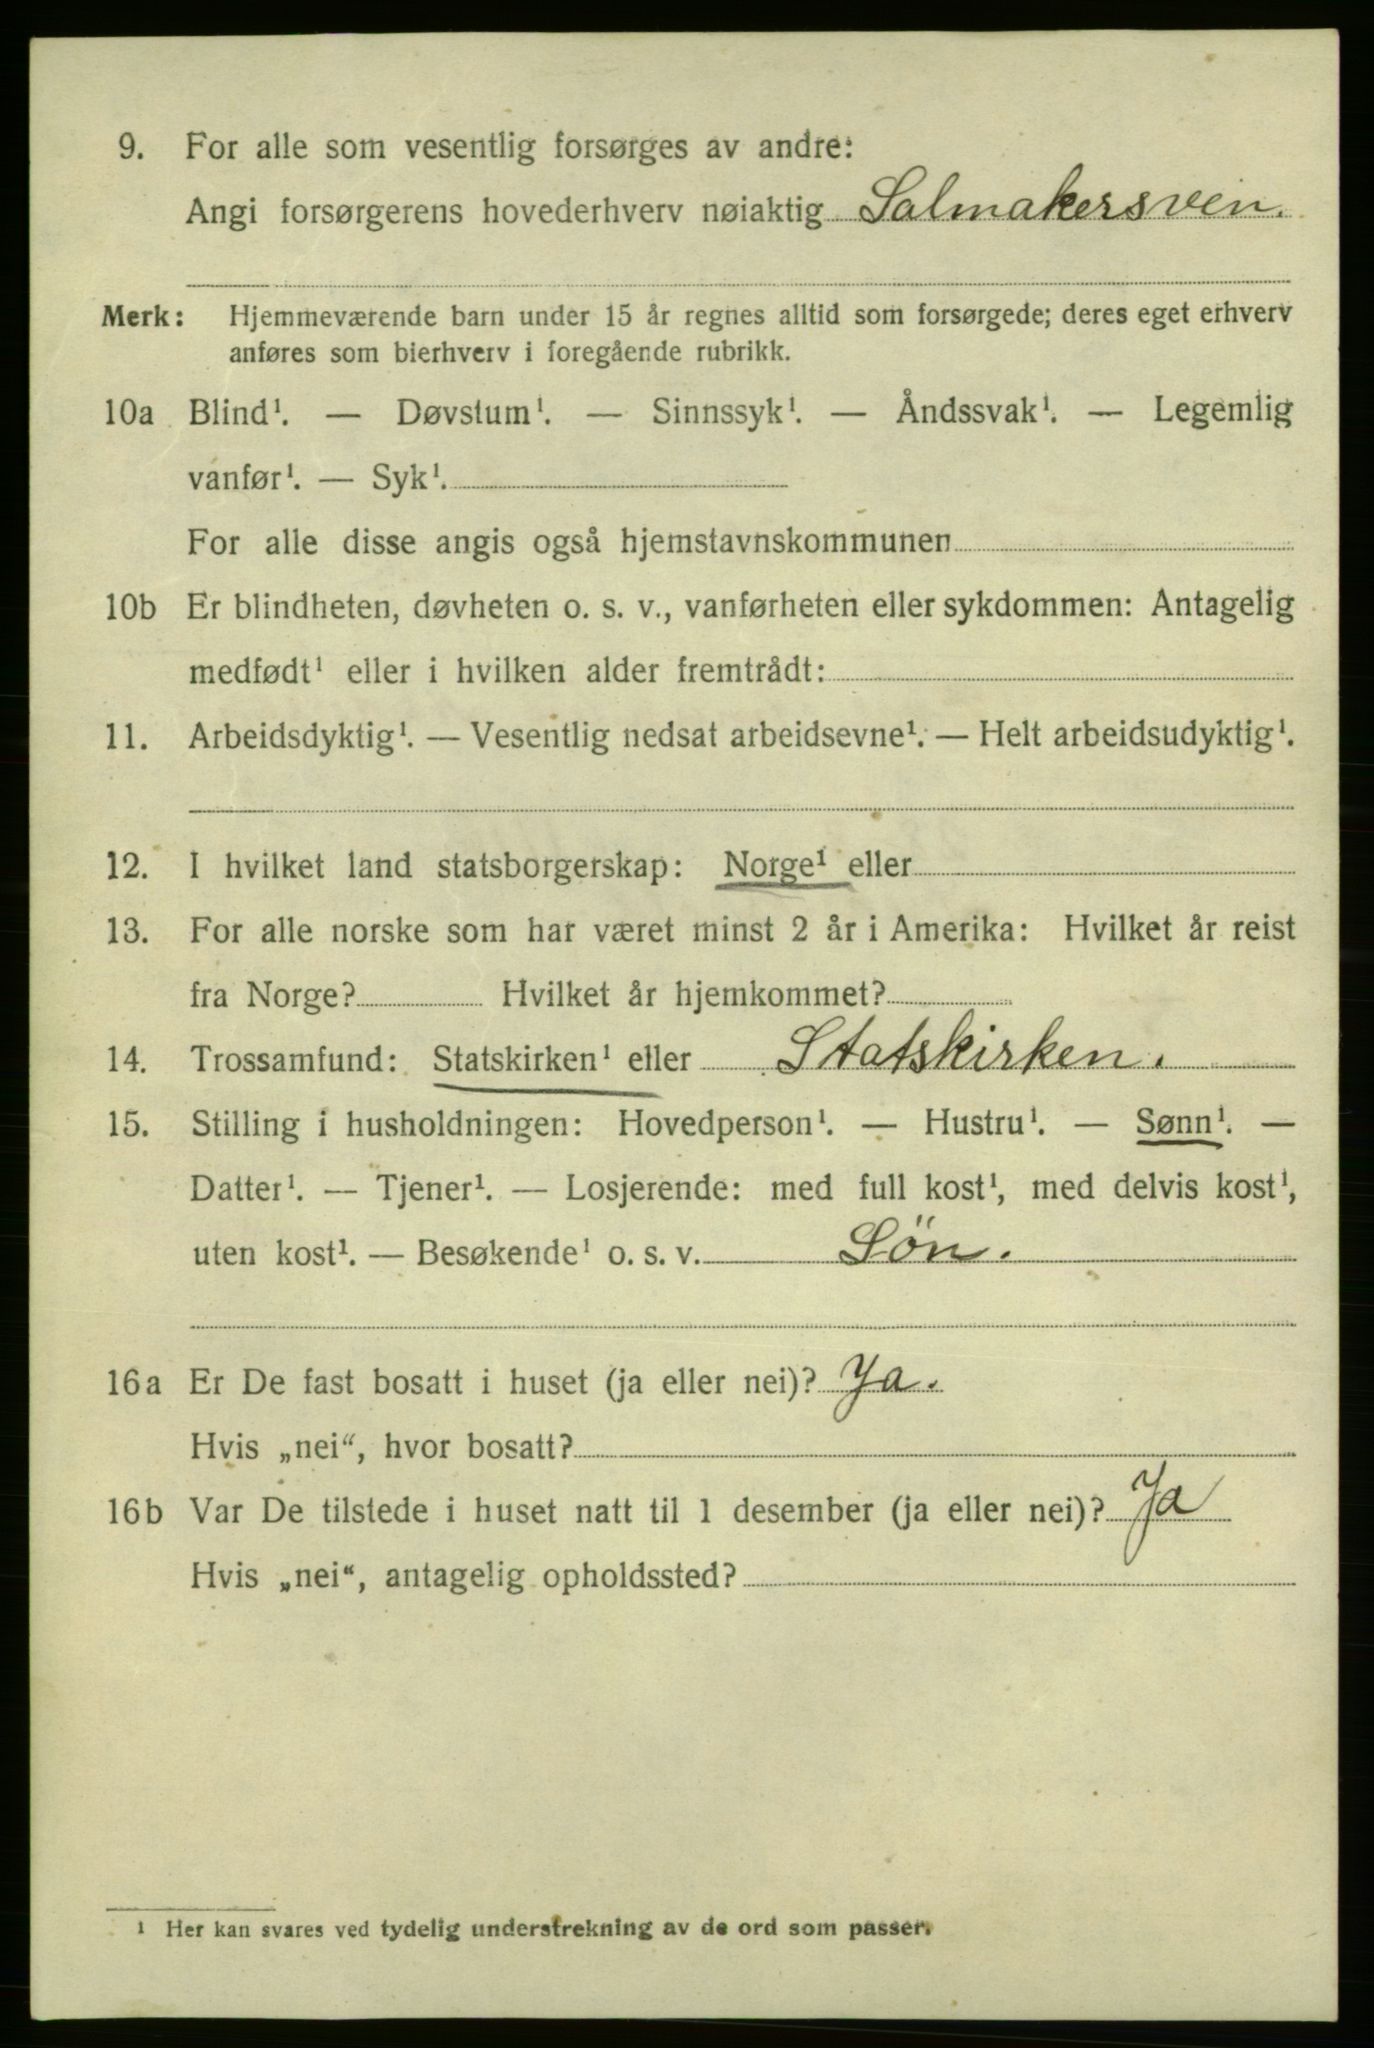 9. For alle som vesentlig forsørges av andre:
Angi forsørgerens hovederhverv nøiaktig Salmakersven.
Merk: Hjemmeværende barn under 15 år regnes alltid som forsørgede; deres eget erhverv
anføres som bierhverv i foregående rubrikk.
10a Blind¹. — Døvstum¹. — Sinnssyk¹. — Åndssvak¹. — Legemlig
vanfør¹. — Syk¹.
For alle disse angis også hjemstavnskommunen
10b Er blindheten, døvheten o. s. v., vanførheten eller sykdommen: Antagelig
medfødt¹ eller i hvilken alder fremtrådt:
11. Arbeidsdyktig¹. — Vesentlig nedsat arbeidsevne¹. — Helt arbeidsudyktig¹.
12. I hvilket land statsborgerskap: Norge¹ eller
13. For alle norske som har været minst 2 år i Amerika: Hvilket år reist
fra Norge? Hvilket år hjemkommet?
14. Trossamfund: Statskirken¹ eller Statskirken.
15. Stilling i husholdningen: Hovedperson¹. — Hustru¹. — Sønn¹. —
Datter¹. — Tjener¹. — Losjerende: med full kost¹, med delvis kost¹,
uten kost¹. — Besøkende¹ o. s. v. Sön.
16a Er De fast bosatt i huset (ja eller nei)? Ja.
Hvis „nei“, hvor bosatt?
16b Var De tilstede i huset natt til 1 desember (ja eller nei)? Ja
Hvis „nei“, antagelig opholdssted?
¹ Her kan svares ved tydelig understrekning av de ord som passer.